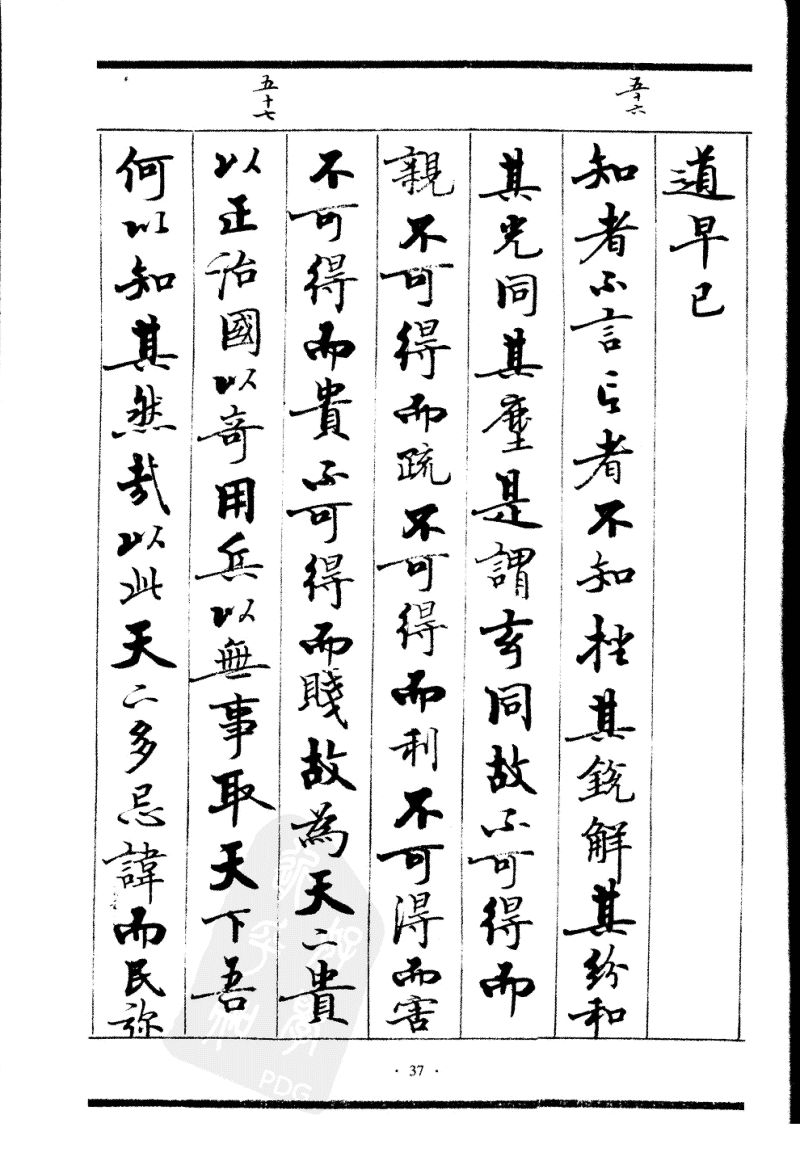 五十六
五十七
道早已
知者不言言者不知挫其銳解其紛和
其光同其塵是謂玄同故不可得而
親不可得而疏不可得而利不可得而害
不可得而貴不可得而賤故為天下貴
以正治國以奇用兵以無事取天下吾
何以知其然哉以此天下多忌諱而民弥
· 37 ·
PDG